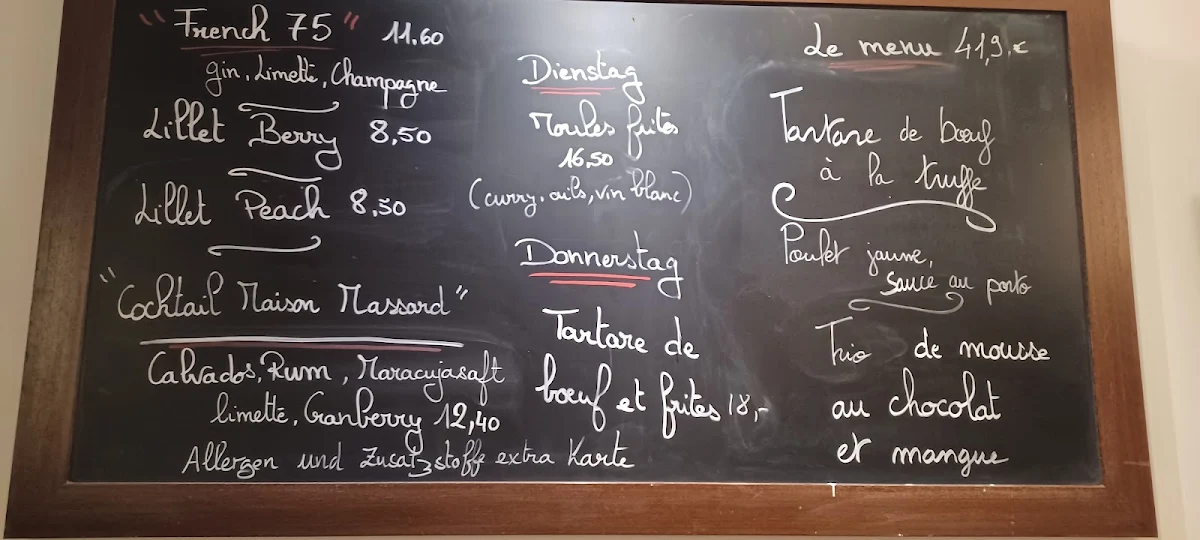 "French 75" 11,60
gin, Limette, Champagne
Lillet Berry 8,50
Lillet Peach 8,50
"Cocktail Maison Massard"
Calvados, Rum, Maracujasaft
limette, Cranberry 12,40
Allergen und Zusatzstoffe extra Karte
Dienstag
Moules frites
16,50
(curry, ails, vin blanc)
Donnerstag
Tartare de
bœuf et frites 18,-
Le menu 41,9.€
Tartare de bœuf
à la truffe
Poulet jaune,
sauce au porto
Trio de mousse
au chocolat
et mangue